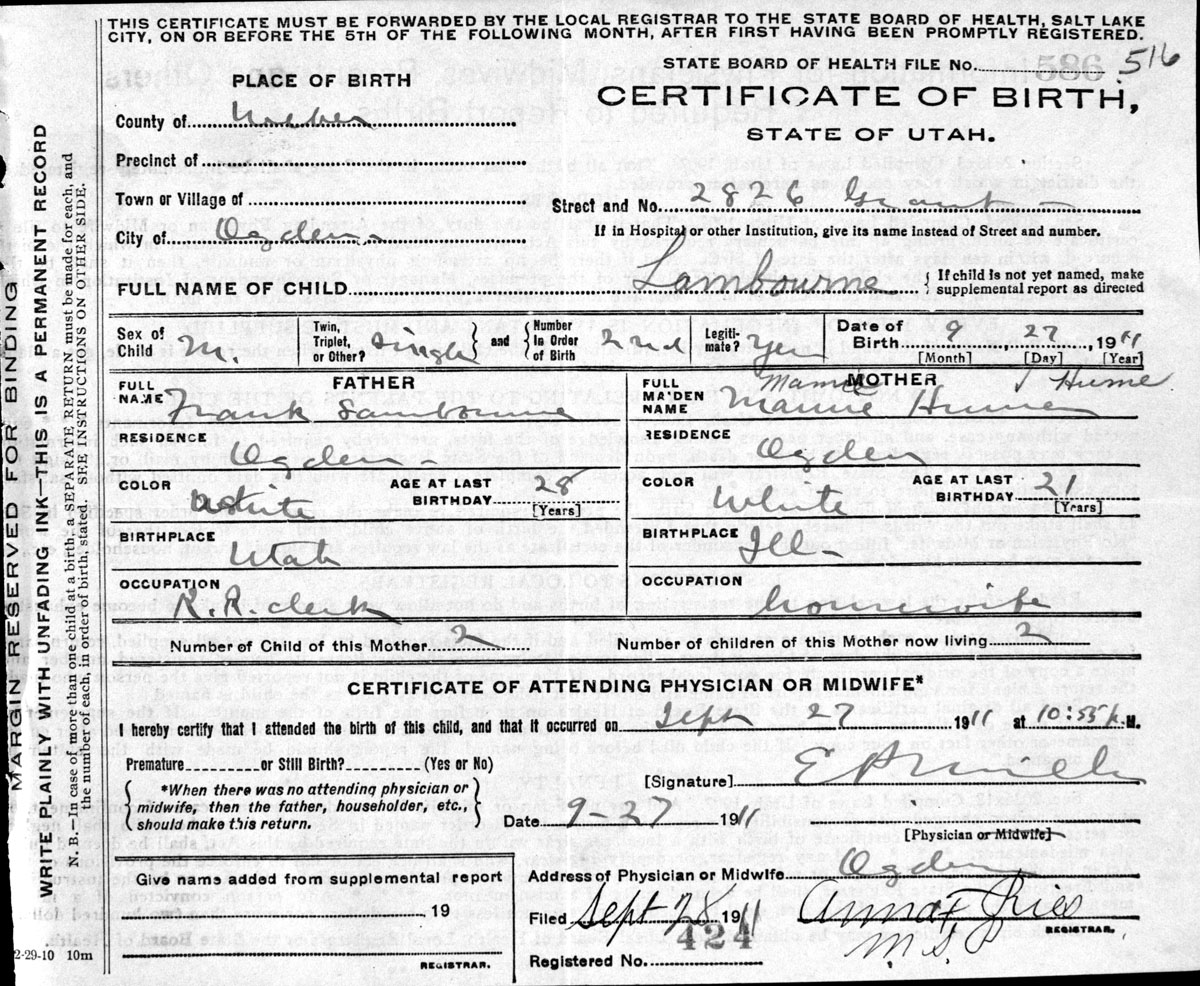 THIS CERTIFICATE MUST BE FORWARDED BY THE LOCAL REGISTRAR TO THE STATE BOARD OF HEALTH, SALT LAKE
CITY, ON OR BEFORE THE 5TH OF THE FOLLOWING MONTH, AFTER FIRST HAVING BEEN PROMPTLY REGISTERED.
MARGIN RESERVED FOR BINDING
WRITE PLAINLY WITH UNFADING INK—THIS IS A PERMANENT RECORD
N. B.—In case of more than one child at a birth, a SEPARATE RETURN must be made for each, and
the number of each, in order of birth stated. SEE INSTRUCTIONS ON OTHER SIDE.
2-29-10 10m
PLACE OF BIRTH
STATE BOARD OF HEALTH FILE No. 586 516
CERTIFICATE OF BIRTH,
STATE OF UTAH.
County of Weber
Precinct of
Town or Village of
Street and No. 2826 Grant
City of Ogden
If in Hospital or other Institution, give its name instead of Street and number.
FULL NAME OF CHILD Lambourne { If child is not yet named, make
supplemental report as directed
Sex of Child M. Twin, Triplet, or Other? Single and { Number in Order of Birth 2nd Legiti-mate? Yes Date of Birth 9 27, 1911
[Month] [Day] [Year]
FATHER
FULL NAME Frank Lambourne
RESIDENCE
Ogden
COLOR White AGE AT LAST BIRTHDAY 28
[Years]
BIRTHPLACE
Utah
OCCUPATION
R.R. clerk
MOTHER
Mamie J Hume
FULL MAIDEN NAME Hume
RESIDENCE
Ogden
COLOR White AGE AT LAST BIRTHDAY 21
[Years]
BIRTHPLACE Ill
OCCUPATION
housewife
Number of Child of this Mother 2 Number of children of this Mother now living 2
CERTIFICATE OF ATTENDING PHYSICIAN OR MIDWIFE*
I hereby certify that I attended the birth of this child, and that it occurred on Sept 27 1911 at 10:55 p.M.
Premature or Still Birth? (Yes or No)
[Signature]
{ *When there was no attending physician or
midwife, then the father, householder, etc.,
should make this return. }
Date 9-27 1911
[Physician or Midwife]
Address of Physician or Midwife Ogden
Give name added from supplemental report
19
REGISTRAR.
Filed Sept 28 1911 Anna F Ries
M.S.
REGISTRAR.
424
Registered No.